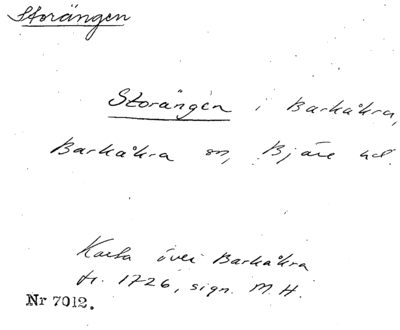 Storängen
Storängen i Barkåkra,
Barkåkra sn, Bjäre hd.
Karta över Barkåkra
fr. 1726, sign. M.H.
Nr 7012.